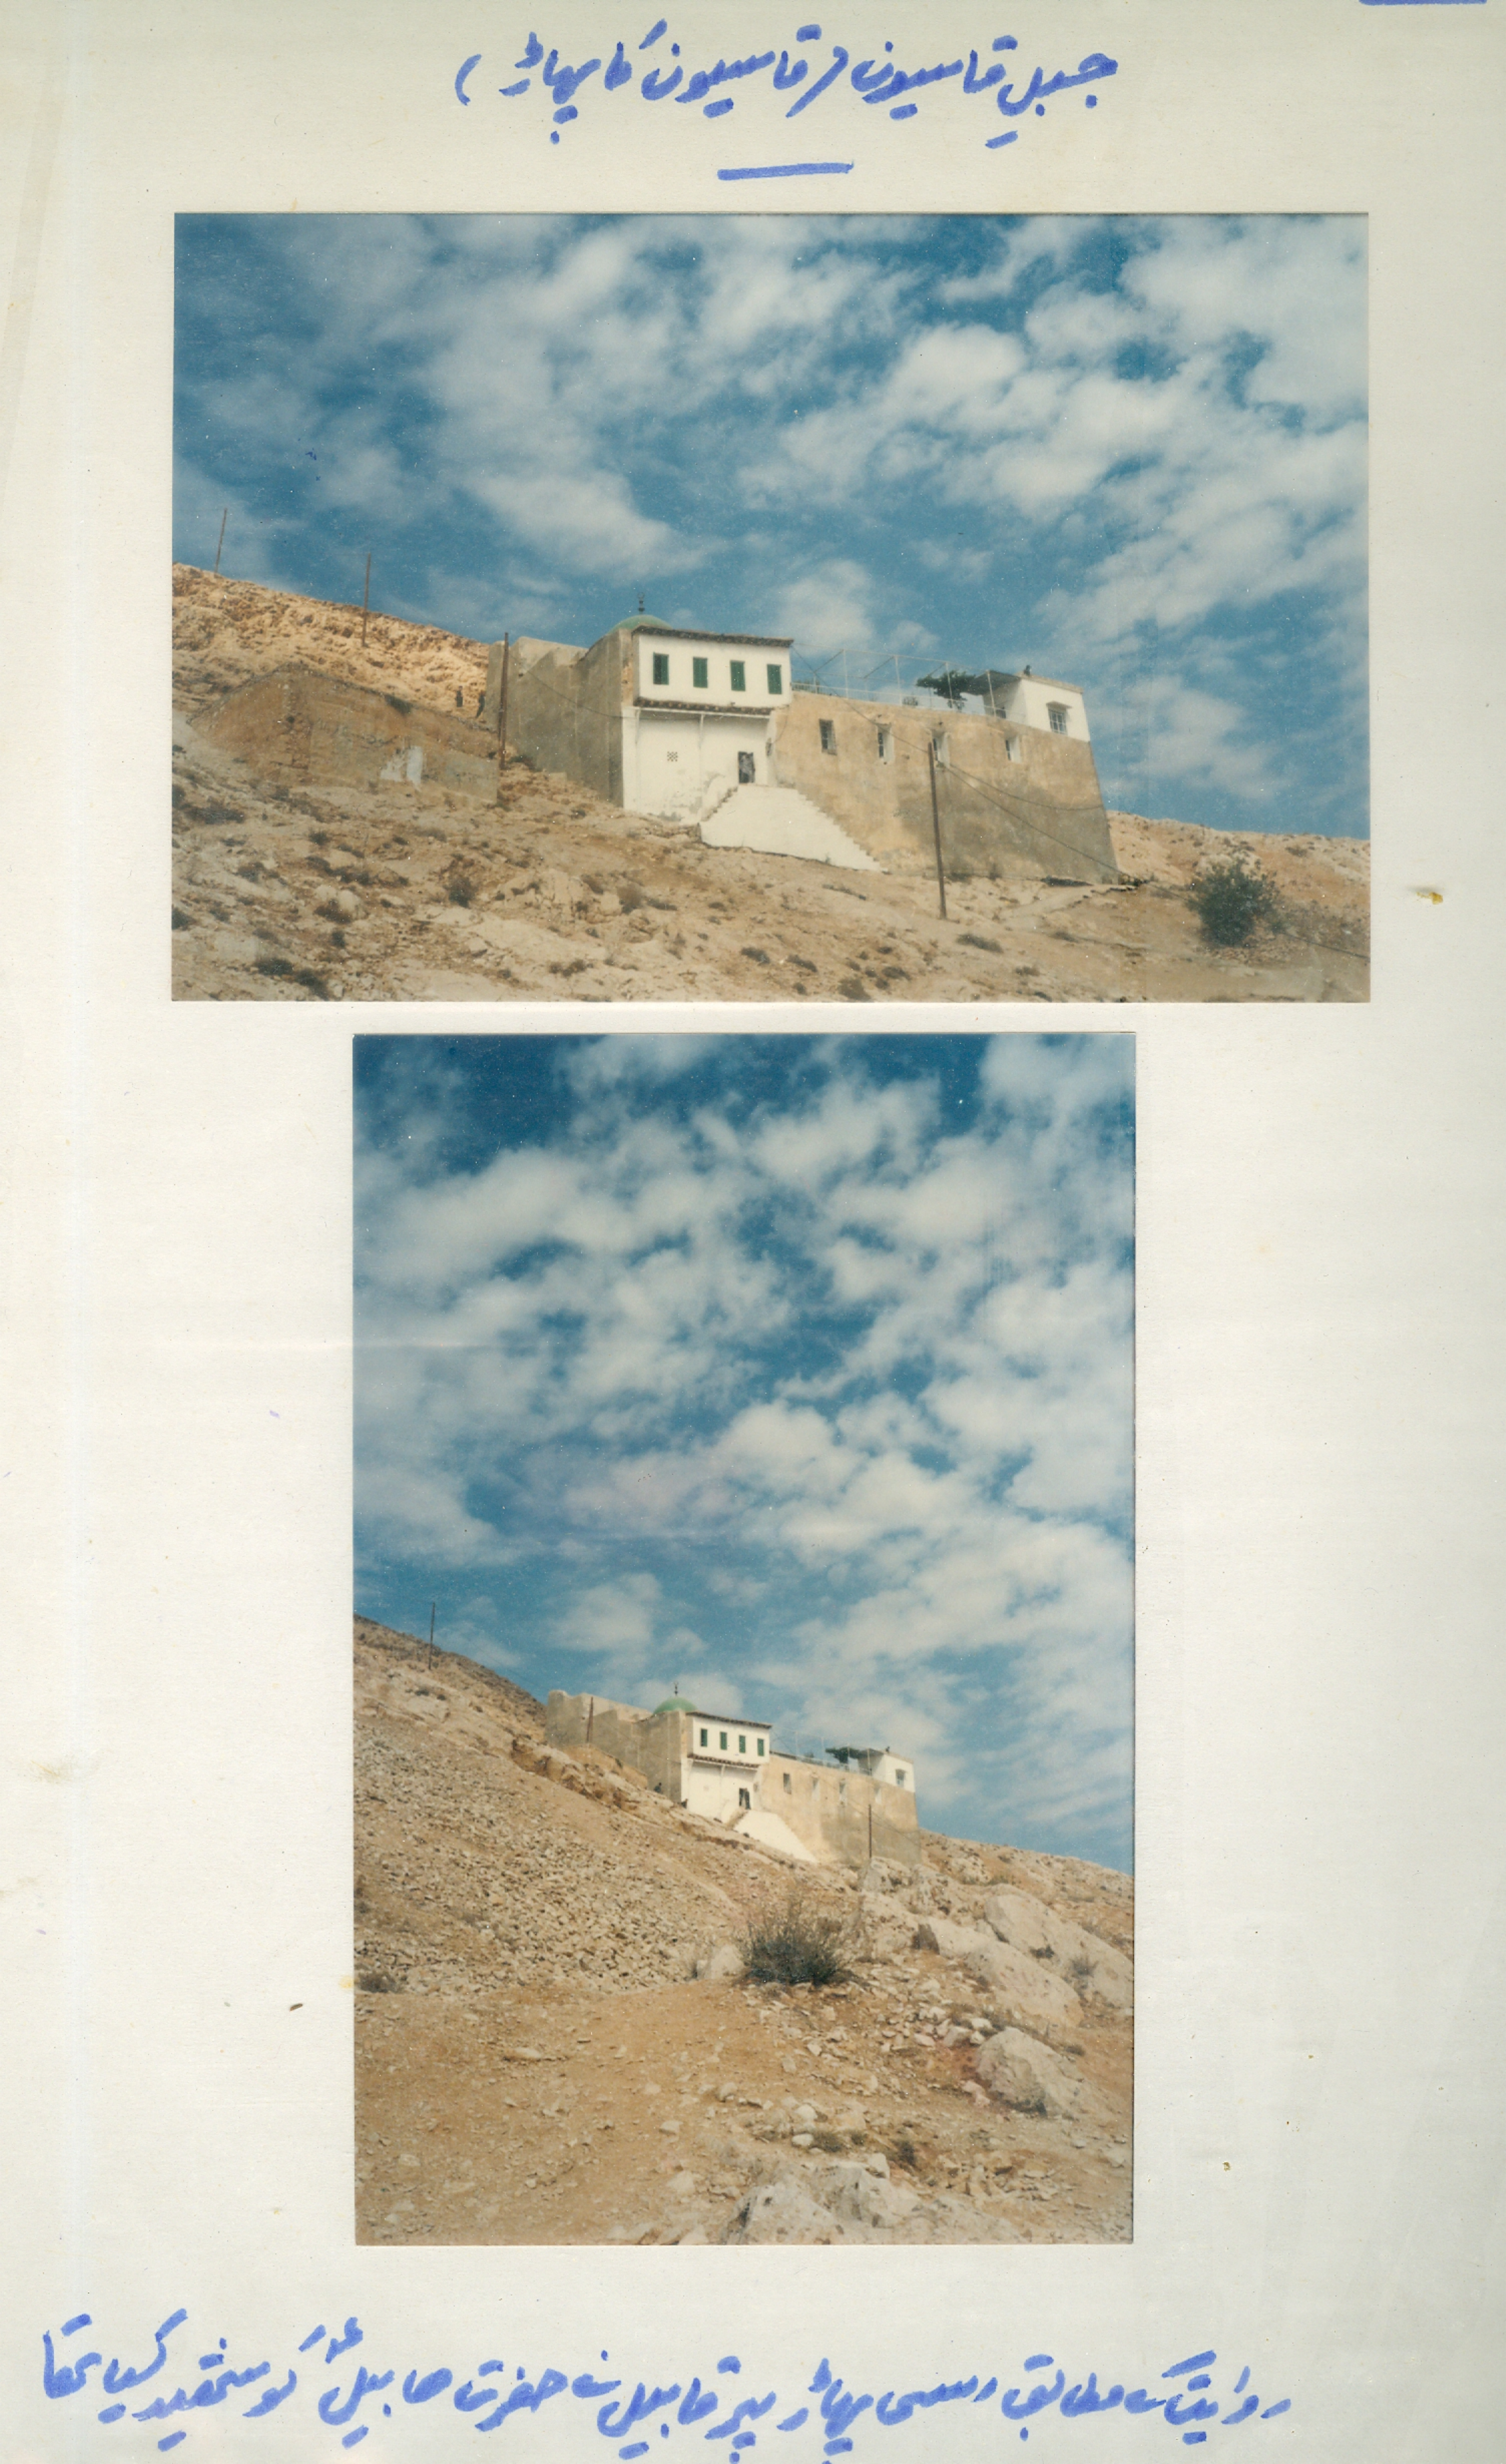 جبلِ قاسیون (قاسیون کا پہاڑ)
روایت کے مطابق اسی پہاڑ پر قابیل نے حضرت ھابیلؑ کو شھید کیا تھا